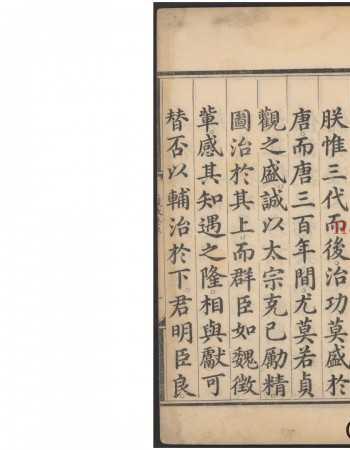 朕惟三代而後治功莫盛於
唐而唐三百年間尤莫若貞
觀之盛誠以太宗克己勵精
圖治於其上而群臣如魏徵
軰感其知遇之隆相與獻可
替否以輔治於下君明臣良